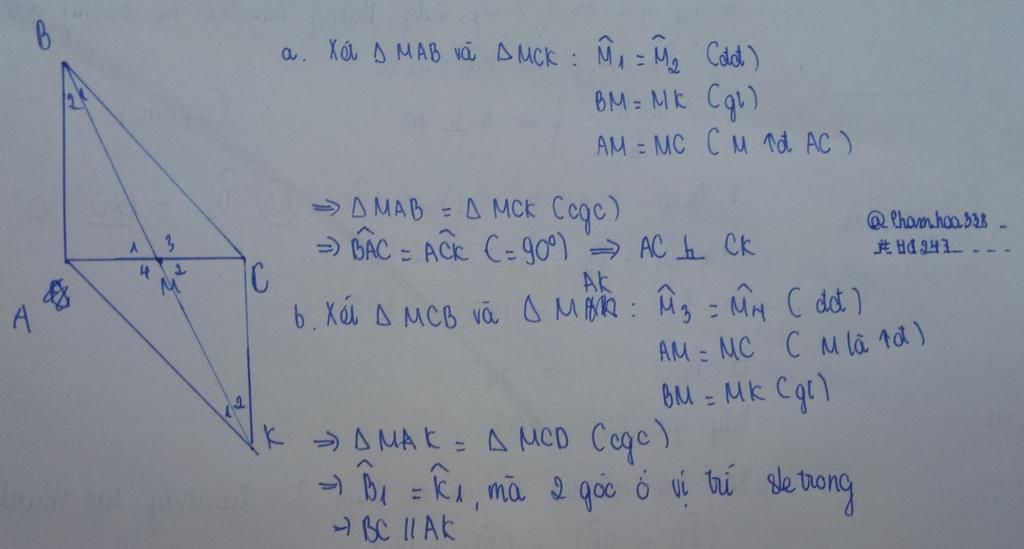 B
2 1
1 3
4 2
M
C
A
1 2
K
a. Xét Δ MAB và Δ MCK : M̂1 = M̂2 (đđ)
BM = MK (gt)
AM = MC ( M tđ AC )
⇒ Δ MAB = Δ MCK (cgc)
⇒ BÂC = AĈK (= 90°) ⇒ AC ⊥ CK
@Phamhoa338
b. Xét Δ MCB và Δ MAK : M̂3 = M̂4 ( đđ)
AM = MC ( M là tđ)
BM = MK (gt)
⇒ Δ MAK = Δ MCD (cgc)
⇒ B̂1 = K̂1, mà 2 góc ở vị trí sle trong
⇒ BC // AK